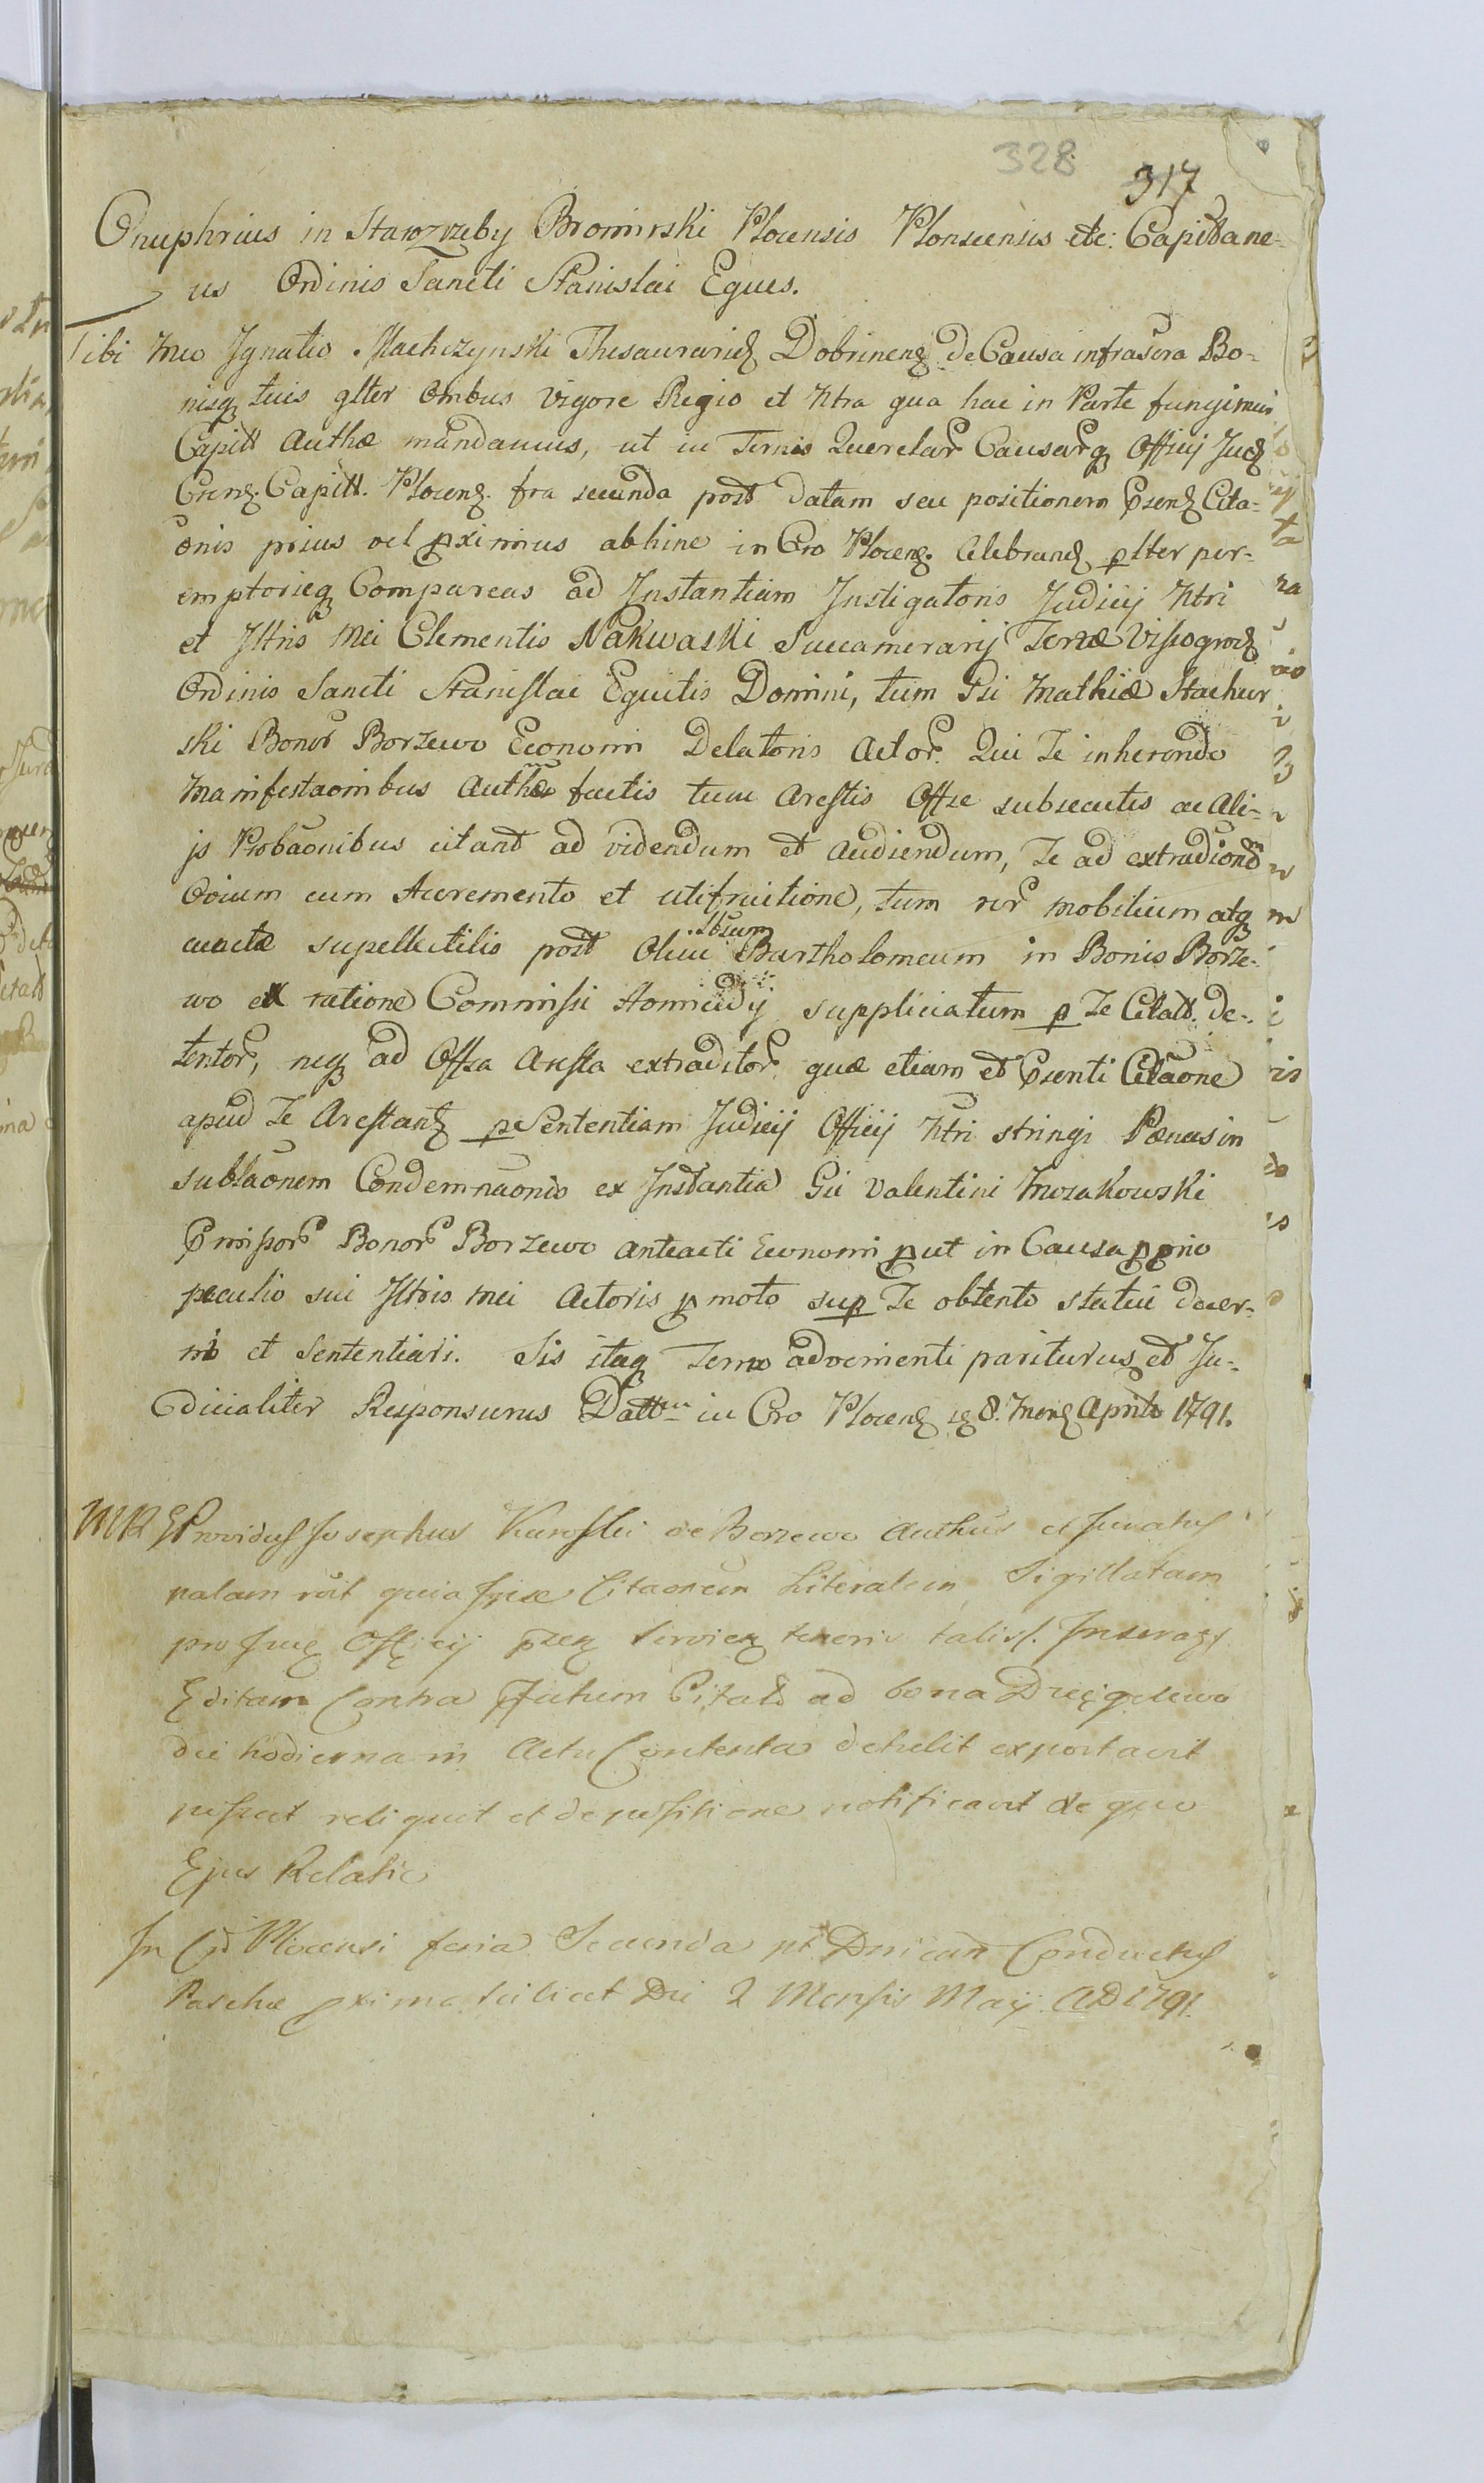 328
317
Onuphrius in Starozrzeby Bromirski Plocensis Plonscensis etc: Capittane-
us Ordinis Sancti Stanislai Eques.
Tibi Mco Ignatio Machczynski Thesaurarieӡ Dobrinenӡ de Causa infrascra Bo-
nisqӡ tuis glter ombus vigore Regio et Ntra qua hac in Parte fungimur
Capitt Authæ mandamus, ut in Ternis Querelar Causarqӡ Officij Judӡ
Crenӡ. Capitt. Plocenӡ. fra secunda post datam seu positionem Psenӡ Cita-
onis prius vel pximius abhinc in Cro Plocenӡ. Celebrandӡ plter per-
emptorieqӡ Compareas ad Instantiam Instigatoris Judicij Ntri
et Illtris Mci Clementis Nakwaski Succamerarij Terræ Vissogrodӡ
Ordinis Sancti Stanislai Equitis Domini, tum Psi Mathiæ Stachur
ski Bonor Borzewo Economi Delatoris Actor. Qui Te inherendo
Manifestaonibus Authæ factis tum Arestis Offse subsecutis ac Ali-
js Probaonibus citant ad videndum et audiendum, Te ad extradiond
Ovium cum Accremento et utifruitione, tum rer mobilium atqӡ
cunctæ supellectilis post Olim Bartholomeum in Bonis Borze-
Ibium
wo ex ratione Commissi Homicidij suppliciatum p Te Citatt. de-
tentor, neqӡ ad Offsa Aresta extraditor, quæ etiam et Psenti Citaone
apud Te Arestantӡ p Sententiam Judicij Officij Ntri stringi Pœnas in
sublaonem Condemnaonis ex Instantia Gsi Valentini Mrozakowski
Pmissor Bonor Borzewo anteacti Economi put in Causa pprio
peculio sui Illtris Mci Actoris pmoto sup Te obtento statui decer-
ni et Sententiari. Sis itaqӡ Terno advenienti pariturus et Ju-
dicialiter Responsurus Datt in Cro Plocenӡ 8. Menӡ Aprilis 1791.
Providus Josephus Kurosski de Borzewo Authus et Juratus
palam rcit quia Ipse Citaonem Literalem Sigillatam
pro Judӡ Officij serviens tenoris talis Inserӡ
Editam Contra Citatt ad bona
die hodierna in Actu Contenta detulit exportavit
posuit reliquit et de positione notificavit de quo
Ejus Relatio
In Cd Plocensi feria Secunda pt Dnicam Conductus
Paschæ pxima scilicet Die 2 Mensis Maij AD 1791.